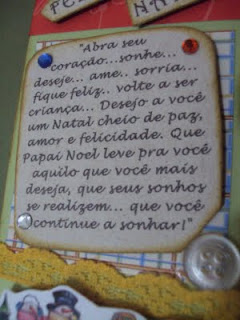 "Abra seu
coração...sonhe...
deseje... ame.. sorria...
fique feliz.. volte a ser
criança... Desejo a você
um Natal cheio de paz,
amor e felicidade. Que
Papai Noel leve pra você
aquilo que você mais
deseja, que seus sonhos
se realizem... que você
continue a sonhar!"